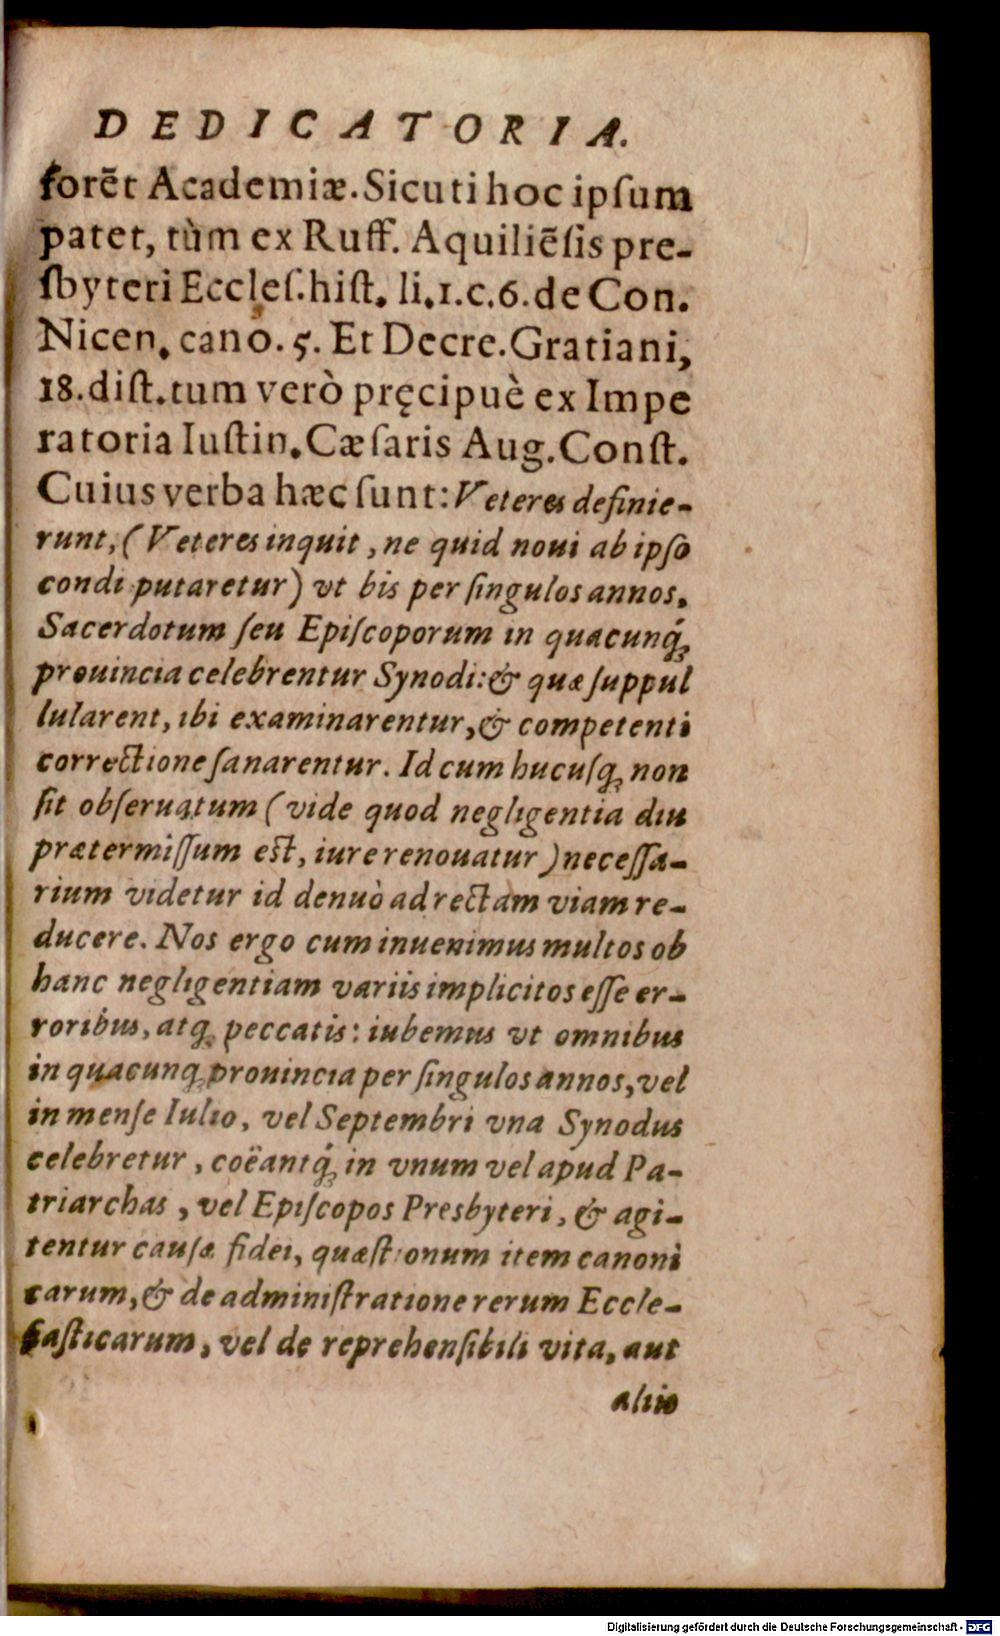 DEDICATORIA.
forēt Academiæ. Sicuti hoc ipſum
patet, tùm ex Ruff. Aquiliēſis pre-
ſbyteri Eccleſ. hiſt. li. 1. c. 6. de Con.
Nicen. cano. 5. Et Decre. Gratiani,
18. diſt. tum verò pręcipuè ex Impe
ratoria Iuſtin. Cæſaris Aug. Conſt.
Cuius verba hæc ſunt: Veteres definie-
runt, (Veteres inquit, ne quid noui ab ipſo
condi putaretur) vt bis per ſingulos annos,
Sacerdotum ſeu Epiſcoporum in quacunq́;
prouincia celebrentur Synodi: & quæ ſuppul
lularent, ibi examinarentur, & competenti
correctione ſanarentur. Id cum hucuſq; non
ſit obſeruatum (vide quod negligentia diu
prætermiſſum eſt, iure renouatur) neceſſa-
rium videtur id denuò ad rectam viam re-
ducere. Nos ergo cum inuenimus multos ob
hanc negligentiam variis implicitos eſſe er-
roribus, atq; peccatis: iubemus vt omnibus
in quacunq; prouincia per ſingulos annos, vel
in menſe Iulio, vel Septembri vna Synodus
celebretur, coëantq́; in vnum vel apud Pa-
triarchas, vel Epiſcopos Presbyteri, & agi-
tentur cauſæ fidei, quæſtionum item canoni
carum, & de adminiſtratione rerum Eccle-
ſiaſticarum, vel de reprehenſibili vita, aut
aliis
Digitalisierung gefördert durch die Deutsche Forschungsgemeinschaft - DFG